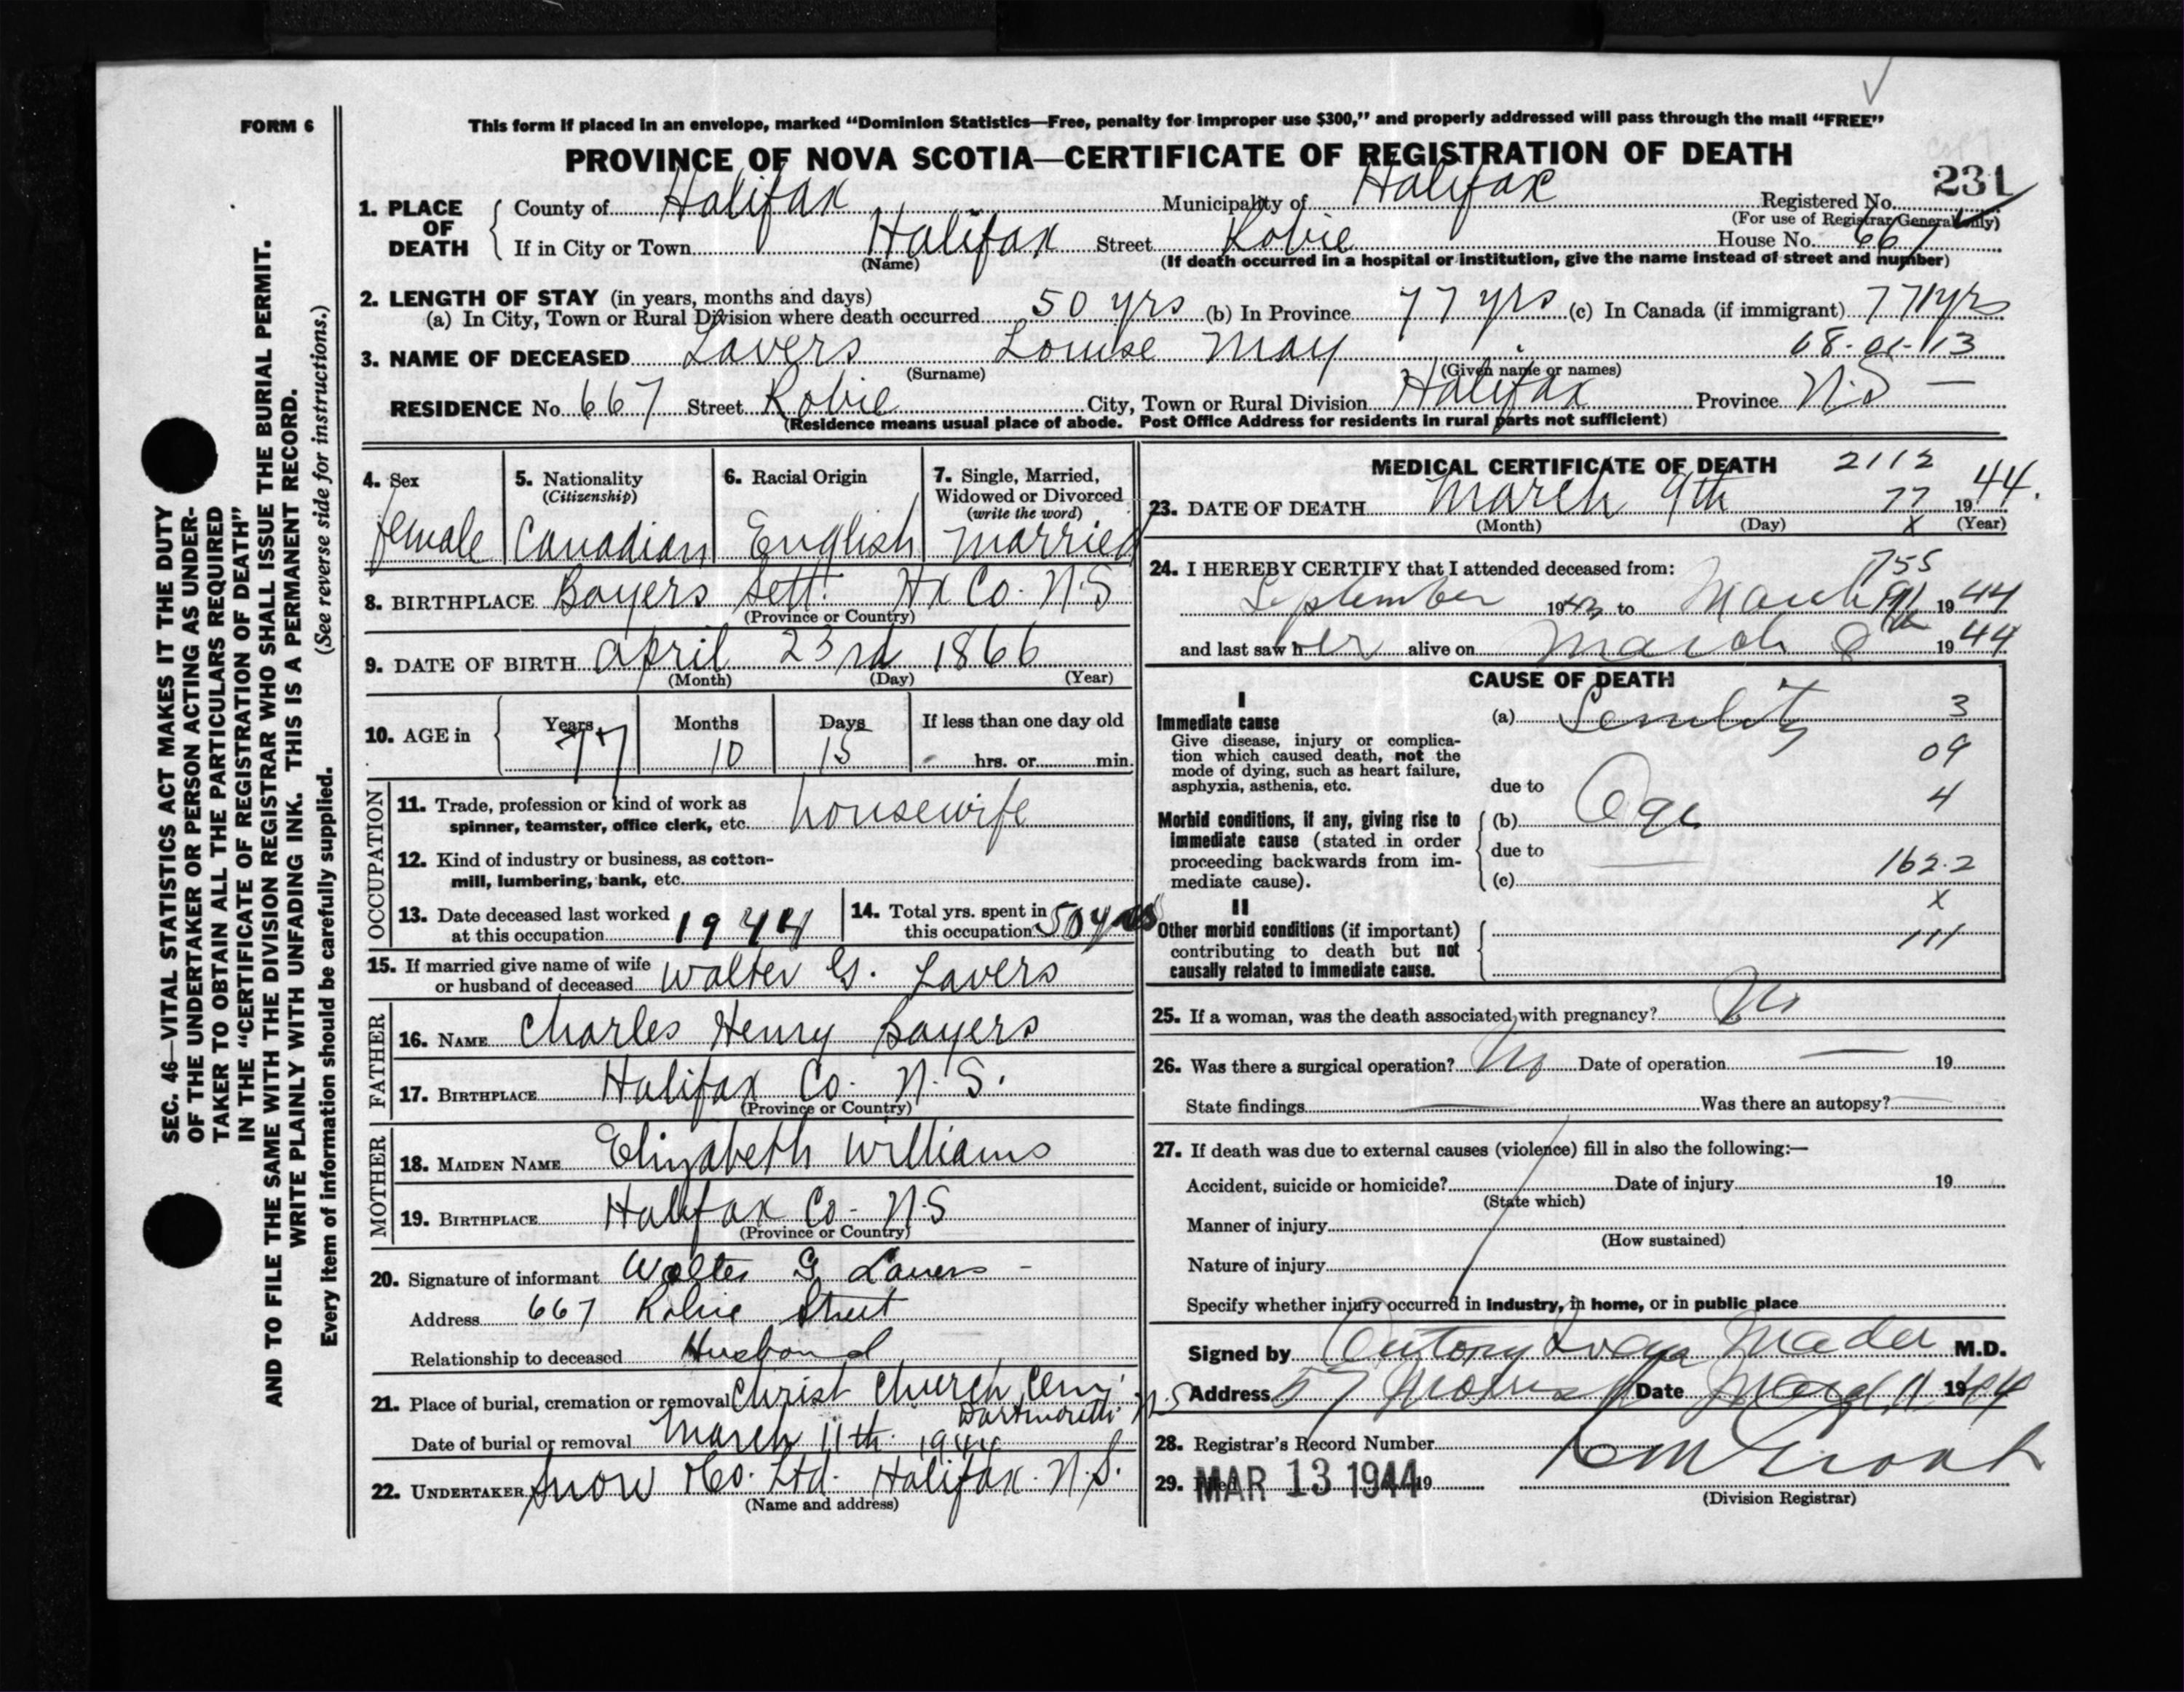 FORM 6
This form if placed in an envelope, marked "Dominion Statistics—Free, penalty for improper use $300," and properly addressed will pass through the mail "FREE"
PROVINCE OF NOVA SCOTIA—CERTIFICATE OF REGISTRATION OF DEATH
231
1. PLACE OF DEATH
County of Halifax Municipality of Halifax Registered No.
(For use of Registrar General only)
If in City or Town Halifax Street Robie House No. 667
(Name) (If death occurred in a hospital or institution, give the name instead of street and number)
2. LENGTH OF STAY (in years, months and days)
(a) In City, Town or Rural Division where death occurred 50 yrs (b) In Province 77 yrs (c) In Canada (if immigrant) 77 yrs
3. NAME OF DECEASED Lavers Louise May 68-01-113
(Surname) (Given name or names)
RESIDENCE No. 667 Street Robie City, Town or Rural Division Halifax Province N.S —
(Residence means usual place of abode. Post Office Address for residents in rural parts not sufficient)
4. Sex
female
5. Nationality
(Citizenship)
Canadian
6. Racial Origin
English
7. Single, Married,
Widowed or Divorced
(write the word)
Married
8. BIRTHPLACE Bayers Sett. Hx Co. N.S
(Province or Country)
9. DATE OF BIRTH April 23rd 1866
(Month) (Day) (Year)
10. AGE in
Years Months Days If less than one day old
77 10 15 hrs. or min.
OCCUPATION
11. Trade, profession or kind of work as
spinner, teamster, office clerk, etc. housewife
12. Kind of industry or business, as cotton-
mill, lumbering, bank, etc.
13. Date deceased last worked
at this occupation 1944
14. Total yrs. spent in
this occupation 50 yrs
15. If married give name of wife
or husband of deceased Walter G. Lavers
FATHER
16. NAME Charles Henry Bayers
17. BIRTHPLACE Halifax Co. N.S.
(Province or Country)
MOTHER
18. MAIDEN NAME Elizabeth Williams
19. BIRTHPLACE Halifax Co- N.S
(Province or Country)
20. Signature of informant Walter G Lavers -
Address 667 Robie Street
Relationship to deceased Husband
21. Place of burial, cremation or removal Christ Church Cem;
Dartmouth N.S
Date of burial or removal March 11th 1944
22. UNDERTAKER Snow & Co. Ltd. Halifax. N.S.
(Name and address)
MEDICAL CERTIFICATE OF DEATH 2112
23. DATE OF DEATH March 9th 77 1944.
(Month) (Day) X (Year)
24. I HEREBY CERTIFY that I attended deceased from: 755
September 1943 to March 9th 1944
and last saw her alive on March 8th 1944
CAUSE OF DEATH
I
Immediate cause
Give disease, injury or complica-
tion which caused death, not the
mode of dying, such as heart failure,
asphyxia, asthenia, etc.
(a) Senility 3
09
due to
4
Morbid conditions, if any, giving rise to
immediate cause (stated in order
proceeding backwards from im-
mediate cause).
(b) Age
due to
162.2
(c)
X
II
Other morbid conditions (if important)
contributing to death but not
causally related to immediate cause.
111
25. If a woman, was the death associated with pregnancy? No
26. Was there a surgical operation? No Date of operation — 19
State findings — Was there an autopsy? —
27. If death was due to external causes (violence) fill in also the following:—
Accident, suicide or homicide? Date of injury 19
(State which)
Manner of injury
(How sustained)
Nature of injury
Specify whether injury occurred in industry, in home, or in public place
Signed by Mader M.D.
Address 57 Morris St Date March 11 1944
28. Registrar's Record Number
29. Filed MAR 13 1944 19
(Division Registrar)
SEC. 46—VITAL STATISTICS ACT MAKES IT THE DUTY
OF THE UNDERTAKER OR PERSON ACTING AS UNDER-
TAKER TO OBTAIN ALL THE PARTICULARS REQUIRED
IN THE "CERTIFICATE OF REGISTRATION OF DEATH"
AND TO FILE THE SAME WITH THE DIVISION REGISTRAR WHO SHALL ISSUE THE BURIAL PERMIT.
WRITE PLAINLY WITH UNFADING INK. THIS IS A PERMANENT RECORD.
Every item of information should be carefully supplied. (See reverse side for instructions.)